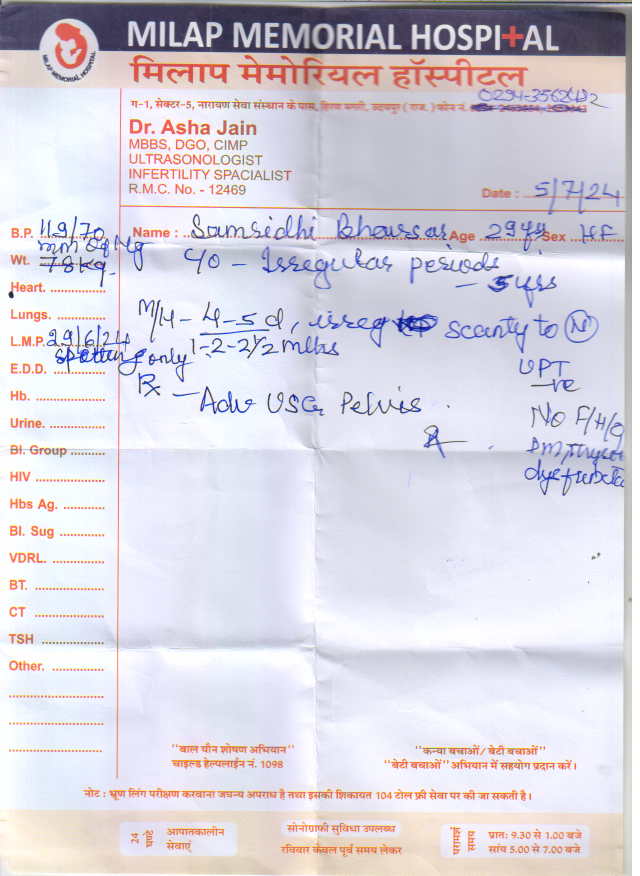 MILAP MEMORIAL HOSPITAL
MILAP MEMORIAL HOSPITAL
मिलाप मेमोरियल हॉस्पीटल
ग-1, सेक्टर-5, नारायण सेवा संस्थान के पास, हिरण मगरी, उदयपुर ( राज. ) फोन नं. 0294-3562412
Dr. Asha Jain
MBBS, DGO, CIMP
ULTRASONOLOGIST
INFERTILITY SPACIALIST
R.M.C. No. - 12469
Date : 5/7/24
B.P. 119/70
mm of Hg
Name : Samridhi Bhavsar Age 29 yrs Sex
Wt. 78 Kg.
C/O - Irregular periods
- 5 yrs
Heart.
Lungs.
M/H - 4-5 d, irreg scanty to N
1-2-2 1/2 mths
L.M.P. 29/6/24
spotting only
UPT
-ve
E.D.D.
Rx - Adv USG Pelvis
Hb.
No F/H/O
DM, Thyroid
dysfunction
Urine.
Bl. Group
HIV
Hbs Ag.
Bl. Sug
VDRL.
BT.
CT
TSH
Other.
"बाल यौन शोषण अभियान"
चाइल्ड हेल्पलाईन नं. 1098
"कन्या बचाओं/ बेटी बचाओं"
"बेटी बचाओं" अभियान में सहयोग प्रदान करें।
नोट : भ्रूण लिंग परीक्षण करवाना जघन्य अपराध है तथा इसकी शिकायत 104 टोल फ्री सेवा पर की जा सकती है।
24 घण्टे
आपातकालीन
सेवाएं
सोनोग्राफी सुविधा उपलब्ध
रविवार केवल पूर्व समय लेकर
परामर्श समय
प्रात: 9.30 से 1.00 बजे
सांय 5.00 से 7.00 बजे